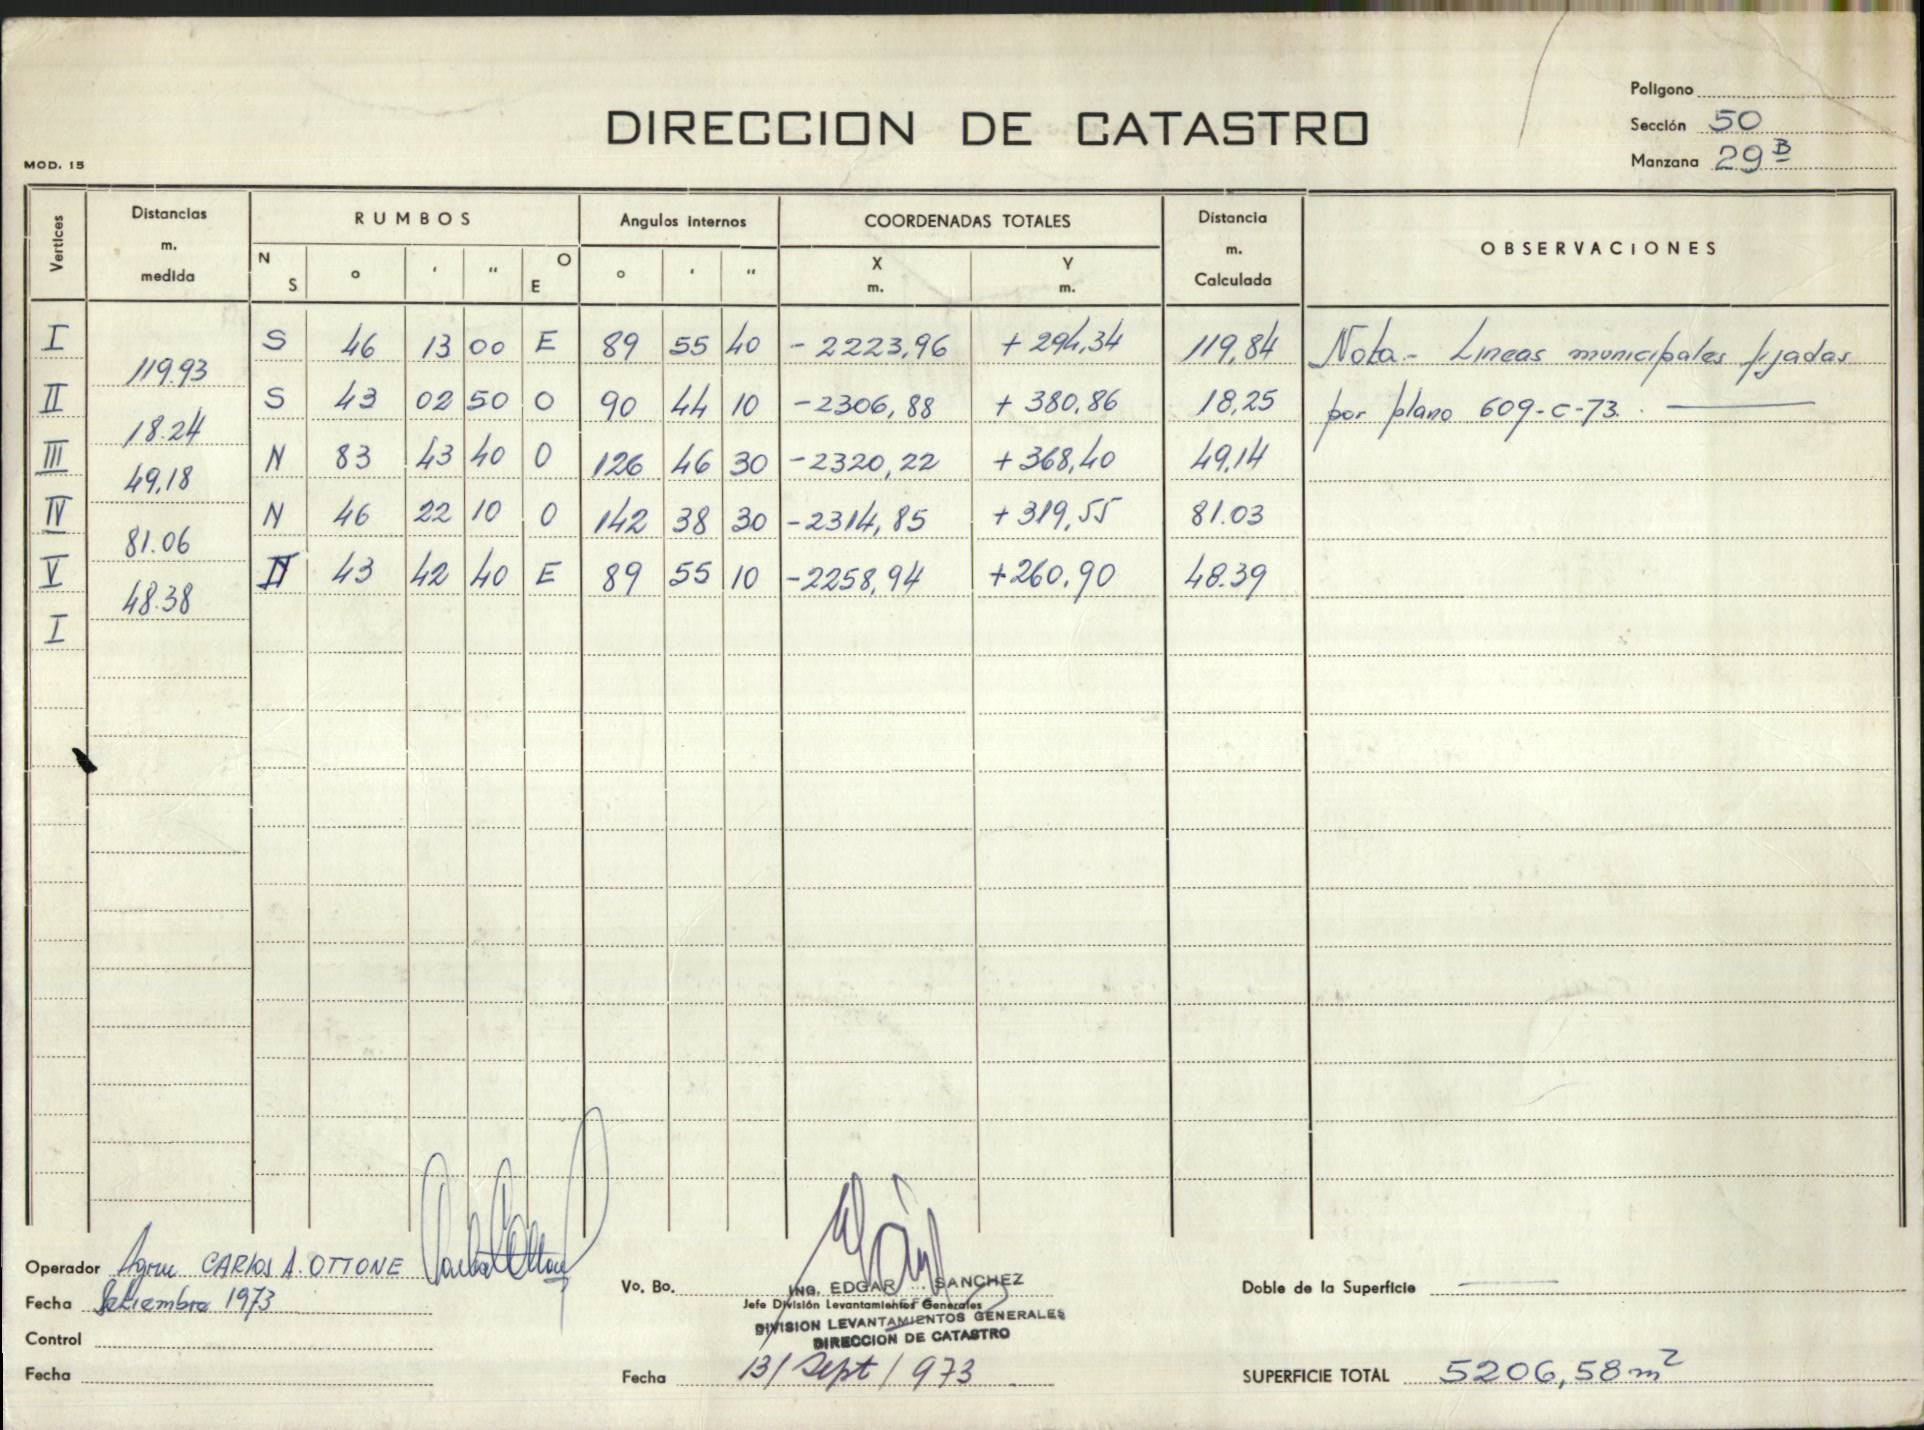 Poligono
DIRECCION DE CATASTRO
Sección 50
MOD. 15
Manzana 29 B
Vertices
Distancias m. medida
RUMBOS
Angulos internos
COORDENADAS TOTALES
Distancia m. Calculada
OBSERVACIONES
N S ° ' " O E ° ' " X m. Y m.
I S 46 13 00 E 89 55 40 - 2223,96 + 294,34 119,84 Nota.- Lineas municipales fijadas
119.93
II S 43 02 50 O 90 44 10 -2306,88 + 380,86 18,25 por plano 609-C-73.
18.24
III N 83 43 40 O 126 46 30 -2320,22 +368,40 49,14
49,18
IV N 46 22 10 O 142 38 30 -2314,85 +319,55 81.03
81.06
V N 43 42 40 E 89 55 10 -2258,94 +260,90 48.39
48.38
I
Operador Agrim CARLOS A. OTTONE
Fecha Setiembre 1973
Control
Fecha
Vo. Bo.
ING. EDGAR SANCHEZ
Jefe División Levantamientos Generales
DIVISION LEVANTAMIENTOS GENERALES
DIRECCION DE CATASTRO
Fecha 13/Sept/973
Doble de la Superficie
SUPERFICIE TOTAL 5206,58 m²